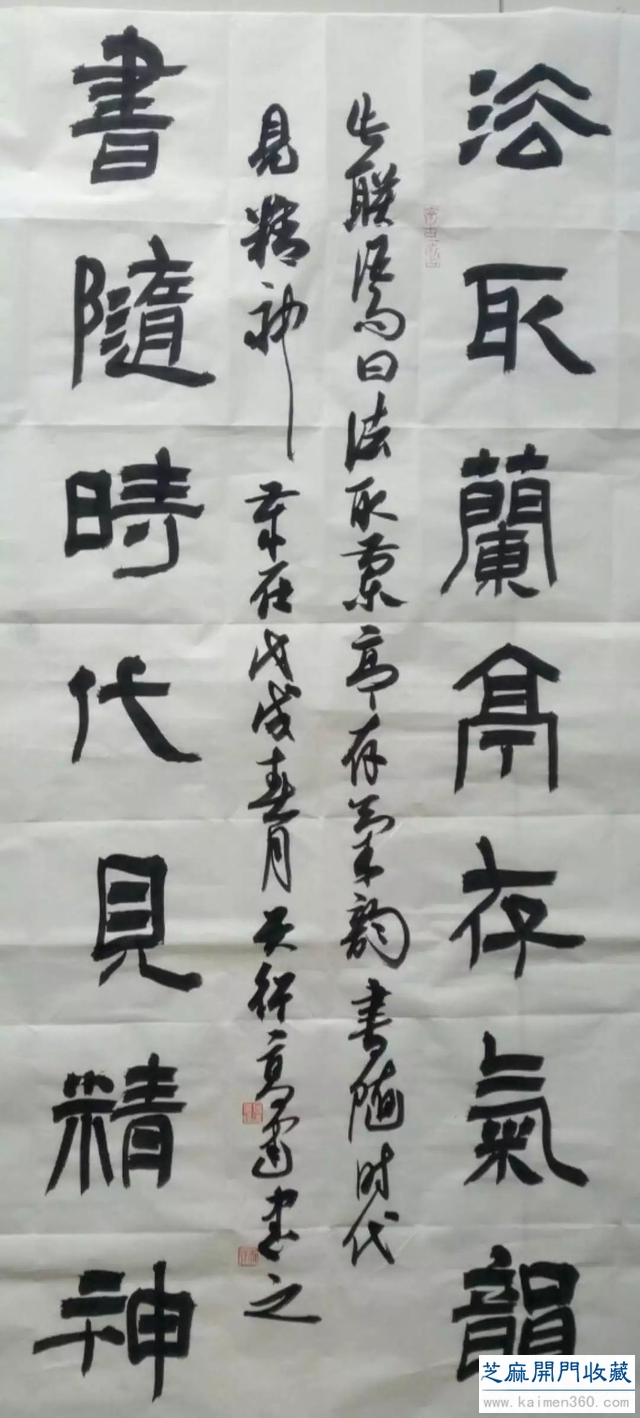 法取蘭亭存氣韻
联曰法取蘭亭存氣韵書随时代
見精神 岁在戊戌春月書之
書隨時代見精神
芝麻開門收藏
www.kaimen360.com